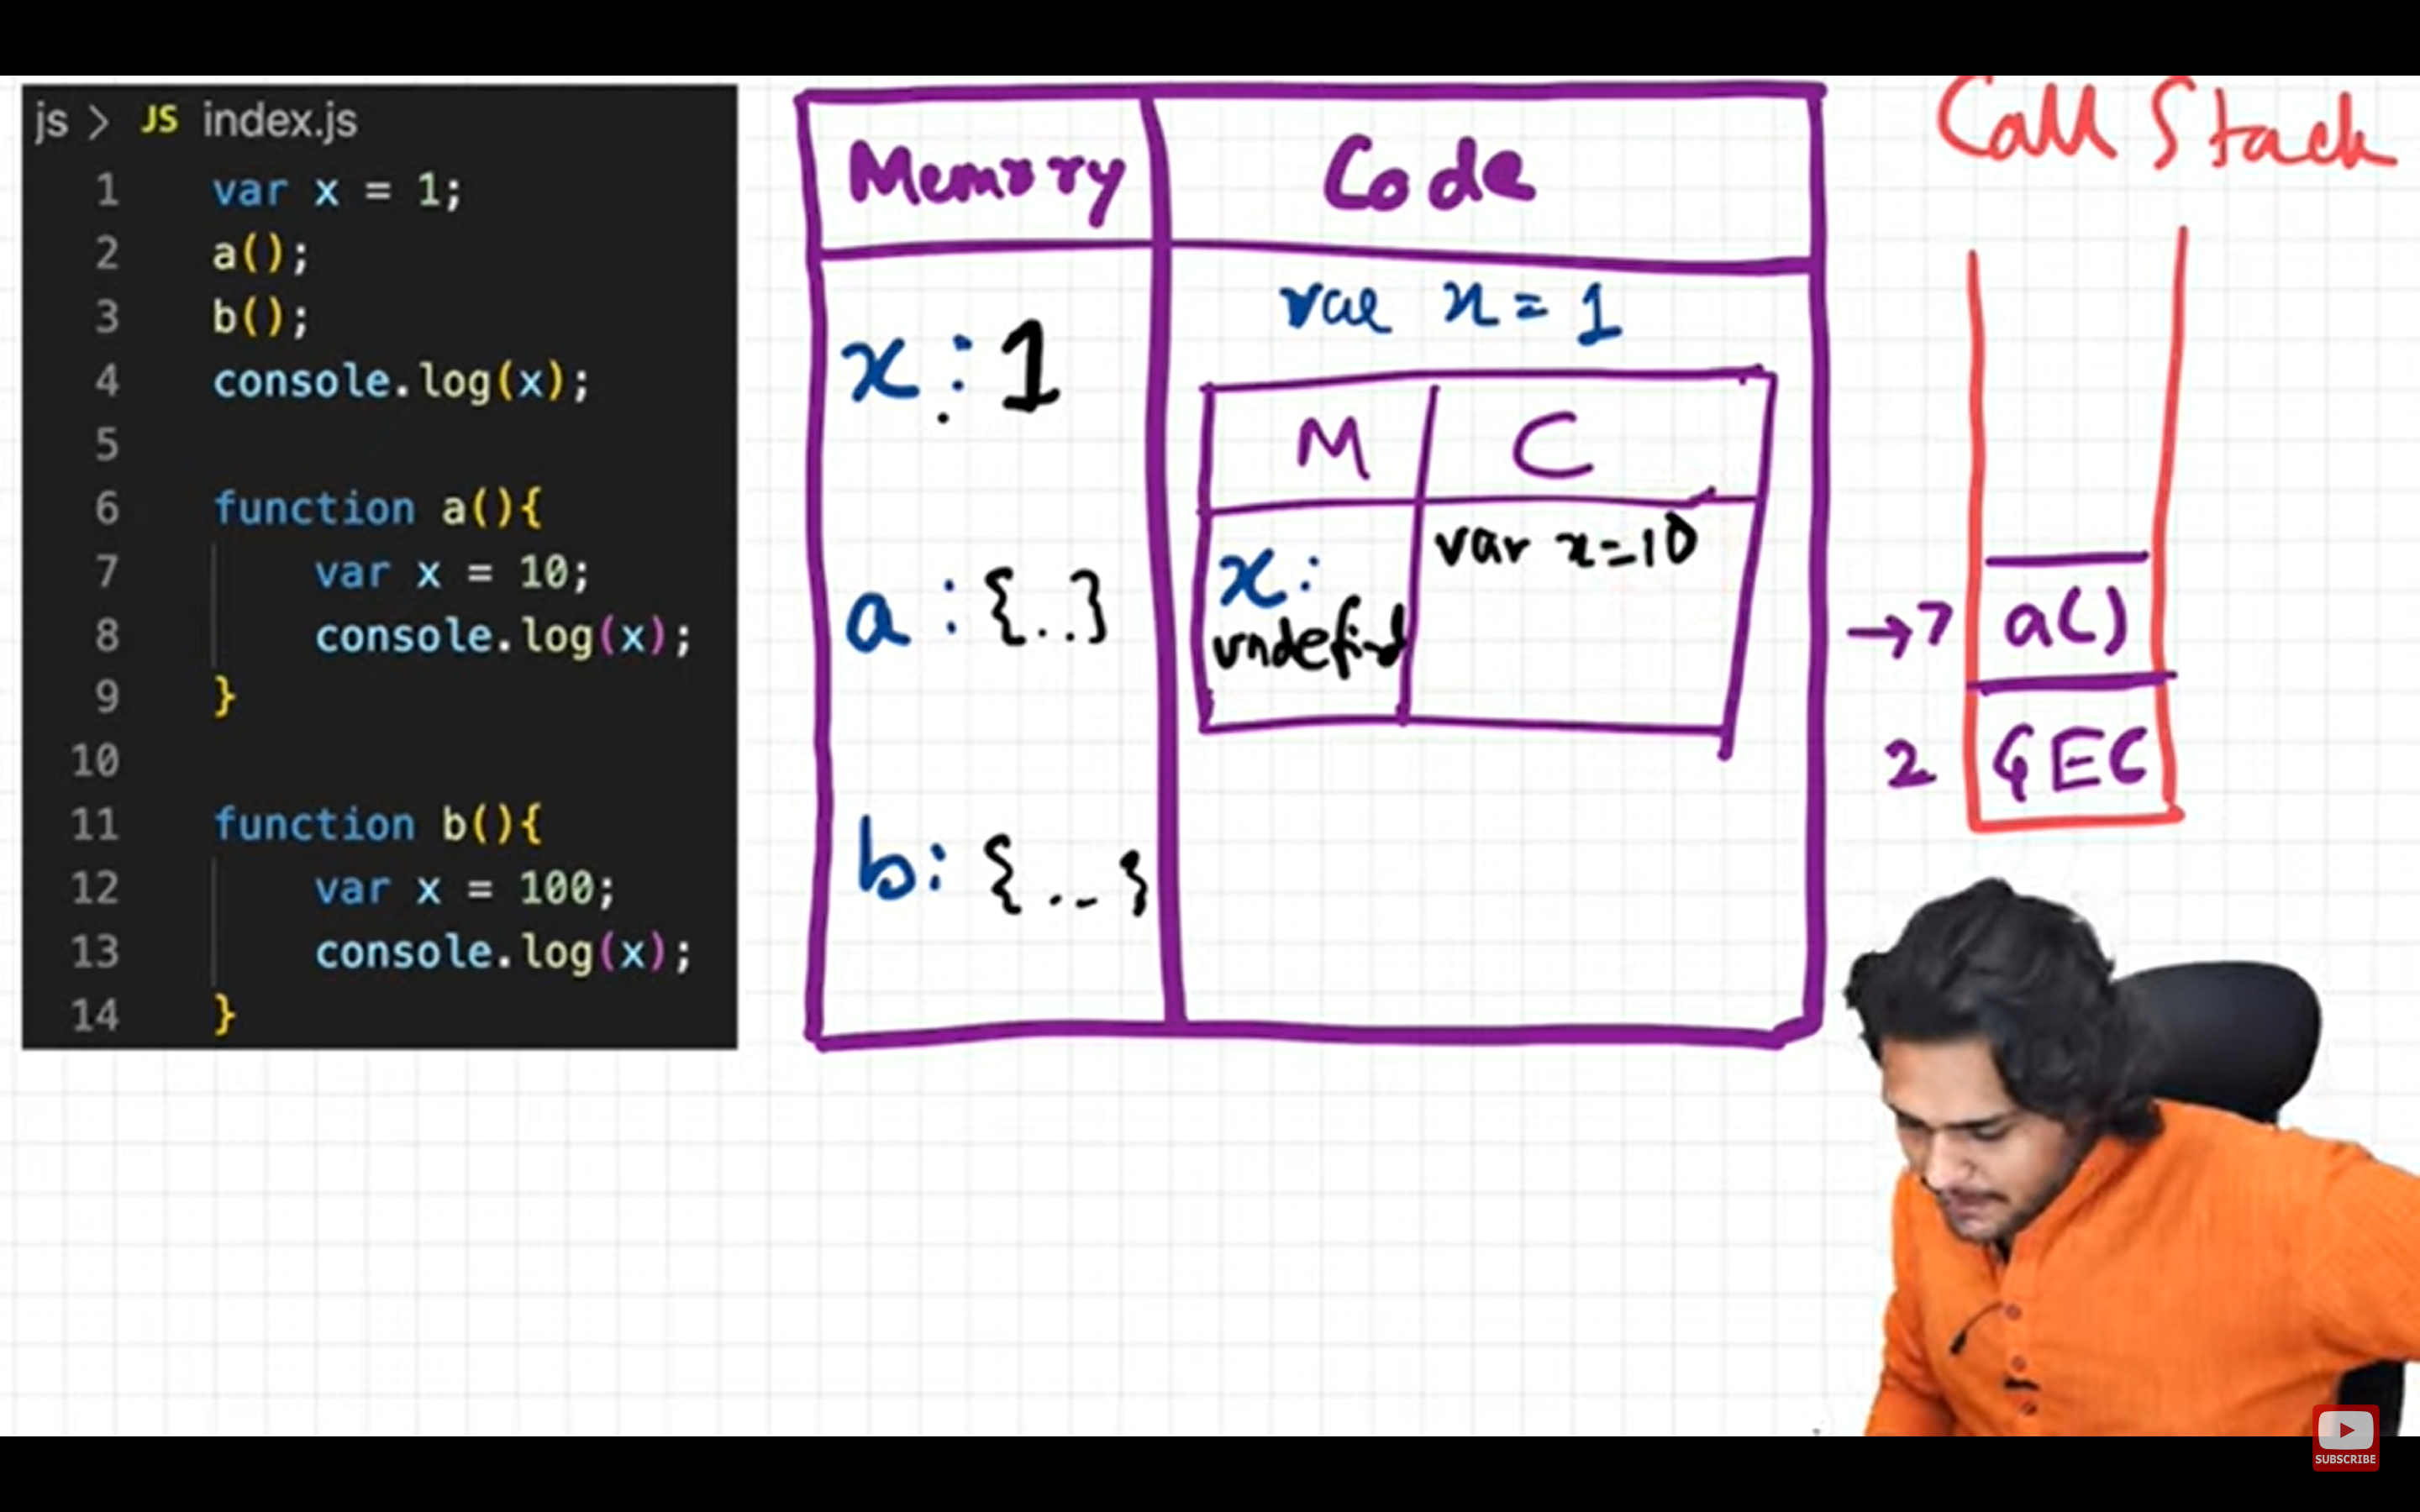 js > JS index.js
1 var x = 1;
2 a();
3 b();
4 console.log(x);
5
6 function a(){
7 var x = 10;
8 console.log(x);
9 }
10
11 function b(){
12 var x = 100;
13 console.log(x);
14 }
Memory Code
var x = 1
x : 1
M C
x: undefind
var x=10
a : {..}
b: {..}
Call Stack
→7 a()
2 GEC
SUBSCRIBE